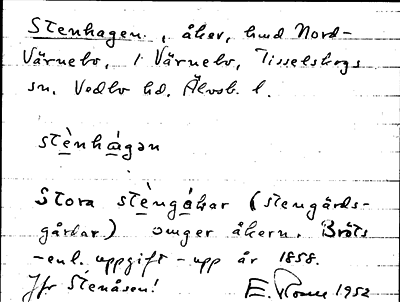 Stenhagen., åker, hmd Nord-
Värnebo, 1 Värnebo, Tisselskogs
sn. Vedbo hd. Älvsb. l.
stènhágən
Stora stèngákar (stengärds-
gårdar) omger åkern. Bröts
-enl. uppgift - upp år 1858.
Jfr Stenåsen! E. 1952